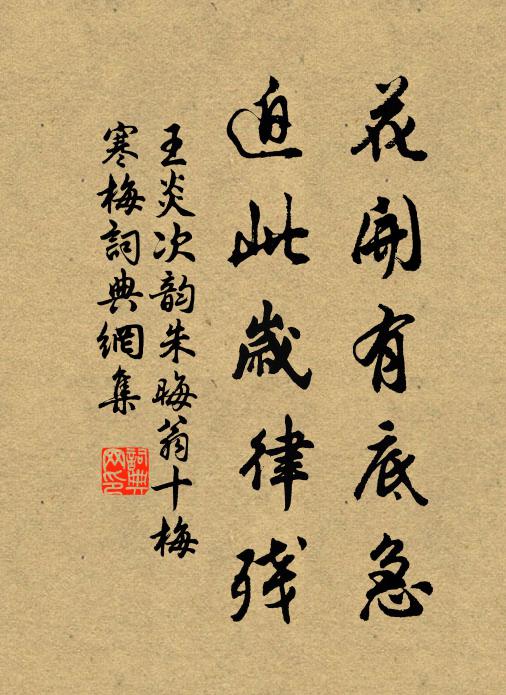 花開有底急
迫此歲律殘
王炎次韵朱晦翁十梅
寒梅詞典網集
詞典
网印